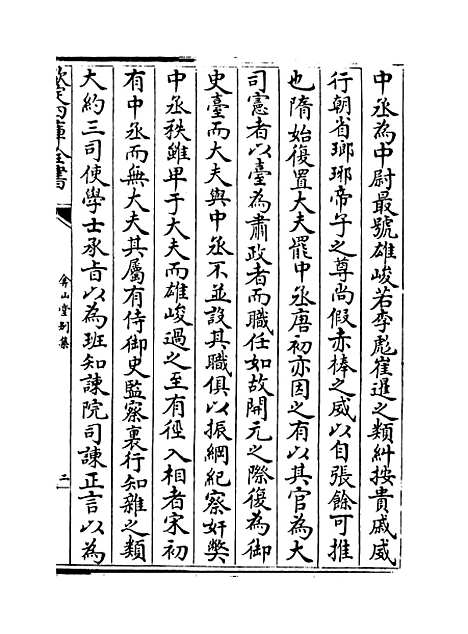 中丞為中尉最號雄峻若李彪崔暹之類糾按貴戚威
行朝省瑯琊帝子之尊尚假赤棒之威以自張餘可推
也隋始復置大夫罷中丞唐初亦因之有以其官為大
司憲者以臺為肅政者而職任如故開元之際復為御
史臺而大夫與中丞不並設其職俱以振綱紀察奸弊
中丞秩雖卑于大夫而雄峻過之至有徑入相者宋初
有中丞而無大夫其屬有侍御史監察裏行知雜之類
大約三司使學士承旨以為班知諫院司諫正言以為
欽定四庫全書
弇山堂別集
二